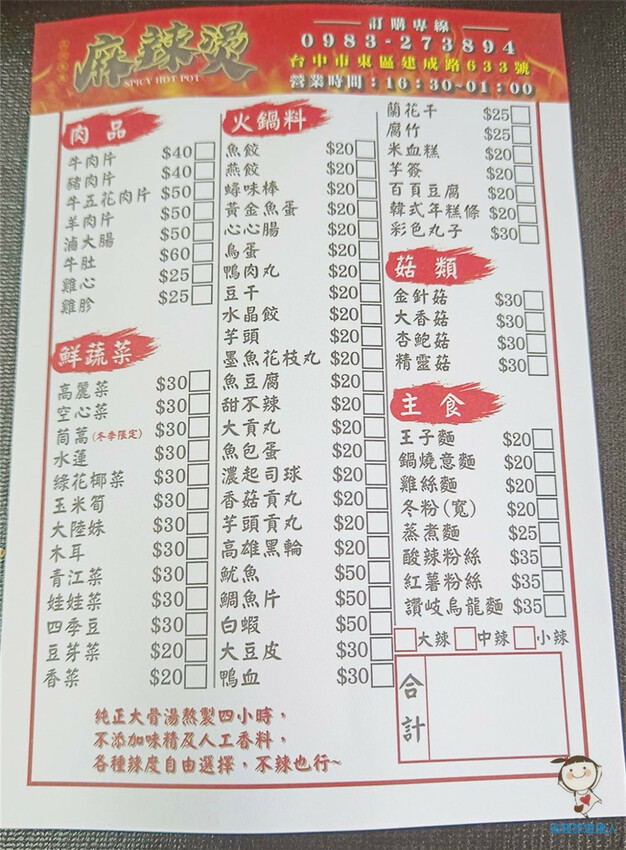 麻辣燙
SPICY HOT POT
訂購專線
0983-273894
台中市東區建成路633號
營業時間：16：30~01：00
肉品
牛肉片 $40
豬肉片 $40
牛五花肉片 $50
羊肉片 $50
滷大腸 $50
牛肚 $60
雞心 $25
雞胗 $25
鮮蔬菜
高麗菜 $30
空心菜 $30
茼萵(冬季限定) $30
水蓮 $30
綠花椰菜 $30
玉米筍 $30
大陸妹 $30
木耳 $30
青江菜 $30
娃娃菜 $30
四季豆 $30
豆芽菜 $20
香菜 $20
火鍋料
魚餃 $20
燕餃 $20
蟳味棒 $20
黃金魚蛋 $20
心心腸 $20
鳥蛋 $20
鴨肉丸 $20
豆干 $20
水晶餃 $20
芋頭 $20
墨魚花枝丸 $20
魚豆腐 $20
甜不辣 $20
大貢丸 $20
魚包蛋 $20
濃起司球 $20
香菇貢丸 $20
芋頭貢丸 $20
高雄黑輪 $20
魷魚 $50
鯛魚片 $50
白蝦 $50
大豆皮 $30
鴨血 $30
蘭花干 $25
腐竹 $25
米血糕 $20
芋簽 $20
百頁豆腐 $20
韓式年糕條 $20
彩色丸子 $30
菇類
金針菇 $30
大香菇 $30
杏鮑菇 $30
精靈菇 $30
主食
王子麵 $20
鍋燒意麵 $20
雞絲麵 $20
冬粉(寬) $20
蒸煮麵 $25
酸辣粉絲 $35
紅薯粉絲 $35
讚岐烏龍麵 $35
大辣 中辣 小辣
合計
純正大骨湯熬製四小時，
不添加味精及人工香料，
各種辣度自由選擇，不辣也行~